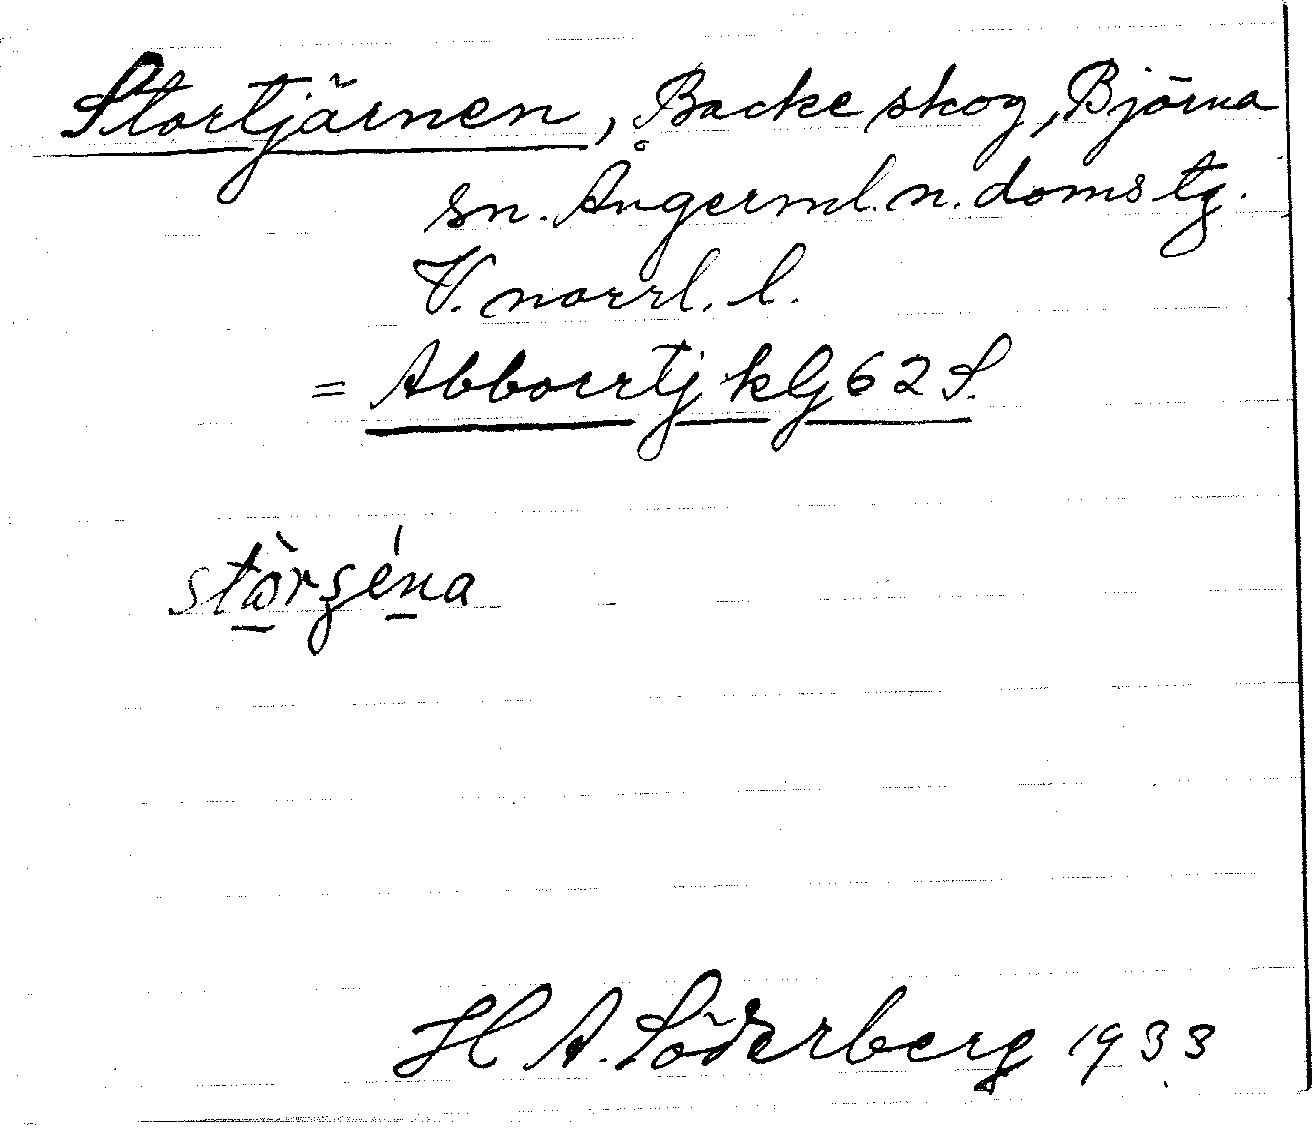 Stortjärnen, Backe skog, Björna
sn. Ångerml. n. doms tg.
V. norrl. l.
= Abborrtj kG 62 S.
H A. Söderberg 1933